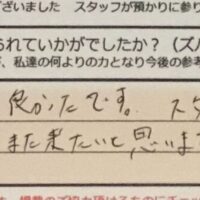 ざいました　スタッフが預かりに参り
られていかがでしたか？（ズバ
が、私達の何よりの力となり今後の参考
良かったです。　スタ
また来たいと思いま